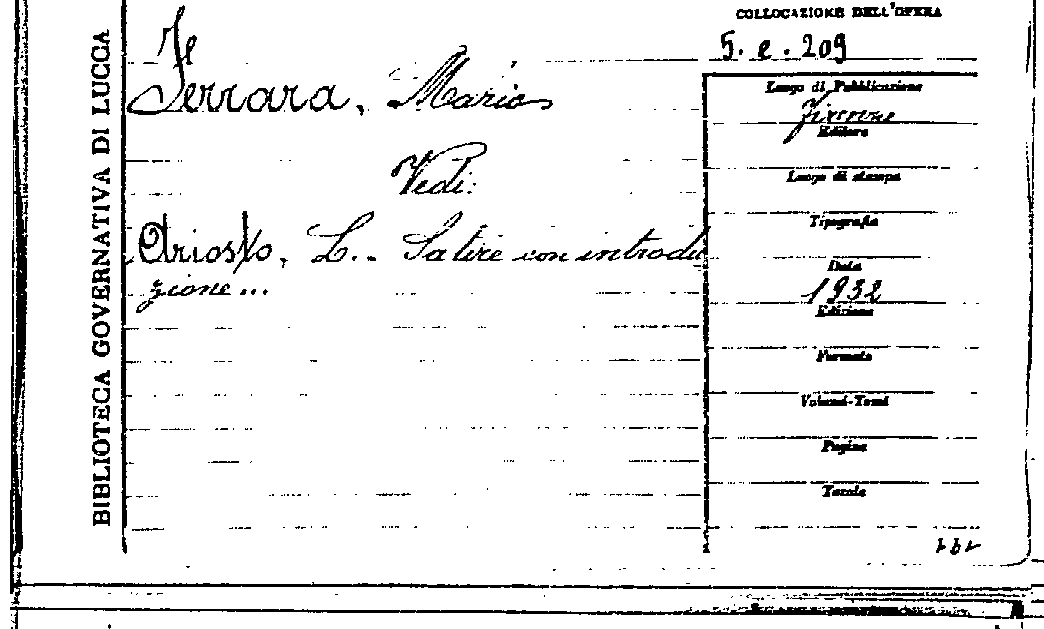 COLLOCAZIONE DELL'OPERA
5. e. 209
Fe
Ferrara, Mario
Vedi:
Ariosto, L. - Satire con introdu
zione...
BIBLIOTECA GOVERNATIVA DI LUCCA
Luogo di Pubblicazione
Firenze
Editore
Luogo di stampa
Tipografia
Data
1932
Edizione
Formato
Volumi-Tomi
Pagine
Tavole